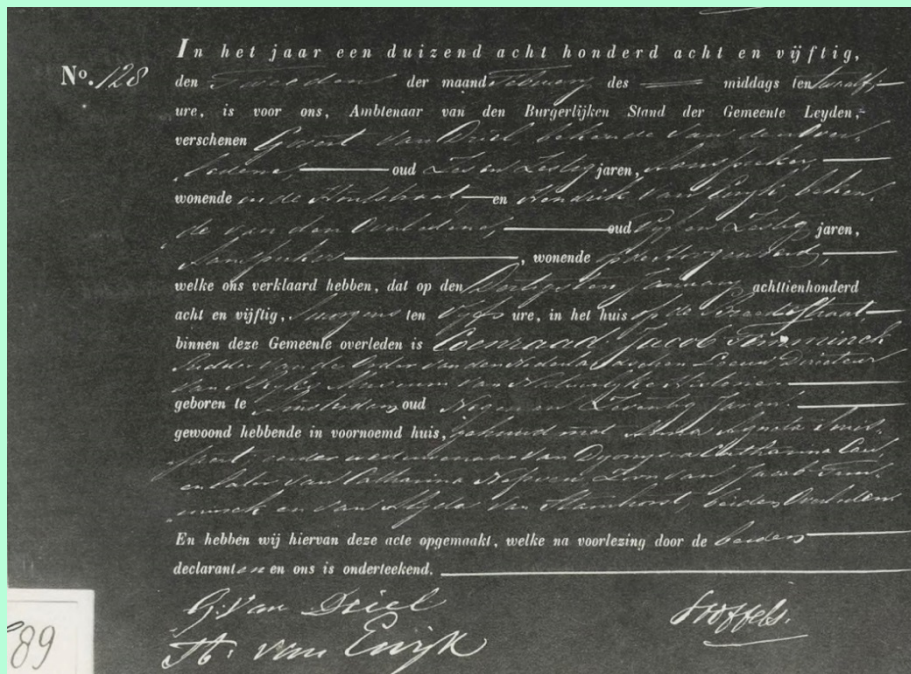 In het jaar een duizend acht honderd acht en vijftig,
No. 128
den Tweeden der maand February des middags ten twaalf
ure, is voor ons, Ambtenaar van den Burgerlijken Stand der Gemeente Leyden,
verschenen Gerrit van Driel, bekende van den Over
ledene, oud Zes en Zestig jaren, Aanspreker,
wonende in de straat en Hendrik van Ewijk, beken
de van den Overledene, oud Vyf en Zestig jaren,
Aanspreker, wonende
welke ons verklaard hebben, dat op den Dertigsten January achttienhonderd
acht en vijftig, 's morgens ten vyf ure, in het huis op de straat
binnen deze Gemeente overleden is Coenraad Jacob Temminck
Ridder van de Orde van den Nederlandschen Leeuw Directeur
van 's Ryks Museum van Natuurlyke Historie
geboren te Amsterdam, oud Negen en Zeventig Jaren
gewoond hebbende in voornoemd huis, gehuwd met Anna Agneta Smis
saert, eerder weduwnaar van Dyonysia Catharina Cau
en later van Catharina Zoon van Jacob Tem
minck en van Alyda van Stamhorst, beiden Overleden
En hebben wij hiervan deze acte opgemaakt, welke na voorlezing door de beiden
declaranten en ons is onderteekend.
G. van Driel
Stoffels.
H. van Ewijk
89